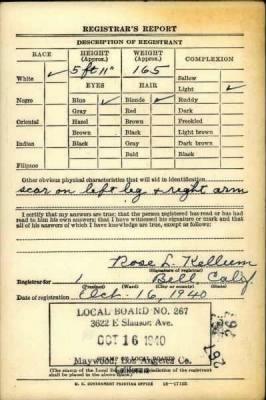 REGISTRAR'S REPORT
DESCRIPTION OF REGISTRANT
RACE HEIGHT (Approx.) WEIGHT (Approx.) COMPLEXION
5 ft 11" 165
White ✓ Sallow
EYES HAIR Light ✓
Negro Blue ✓ Blonde ✓ Ruddy
Gray Red Dark
Oriental Hazel Brown Freckled
Brown Black Light brown
Indian Black Gray Dark brown
Bald Black
Filipino
Other obvious physical characteristics that will aid in identification
scar on left leg & right arm
I certify that my answers are true; that the person registered has read or has had
read to him his own answers; that I have witnessed his signature or mark and that
all of his answers of which I have knowledge are true, except as follows:
Rose L. Kellum
(Signature of registrar)
Registrar for 1 Bell Calif
(Precinct) (Ward) (City or county) (State)
Date of registration Oct. 16, 1940
LOCAL BOARD NO. 267
3622 E Slauson Ave.
OCT 16 1940
STAMP OF LOCAL BOARD
Maywood, Los Angeles Co.
(The stamp of the Local Board having jurisdiction of the registrant
shall be placed in the above space.)
U. S. GOVERNMENT PRINTING OFFICE 16—17105
267